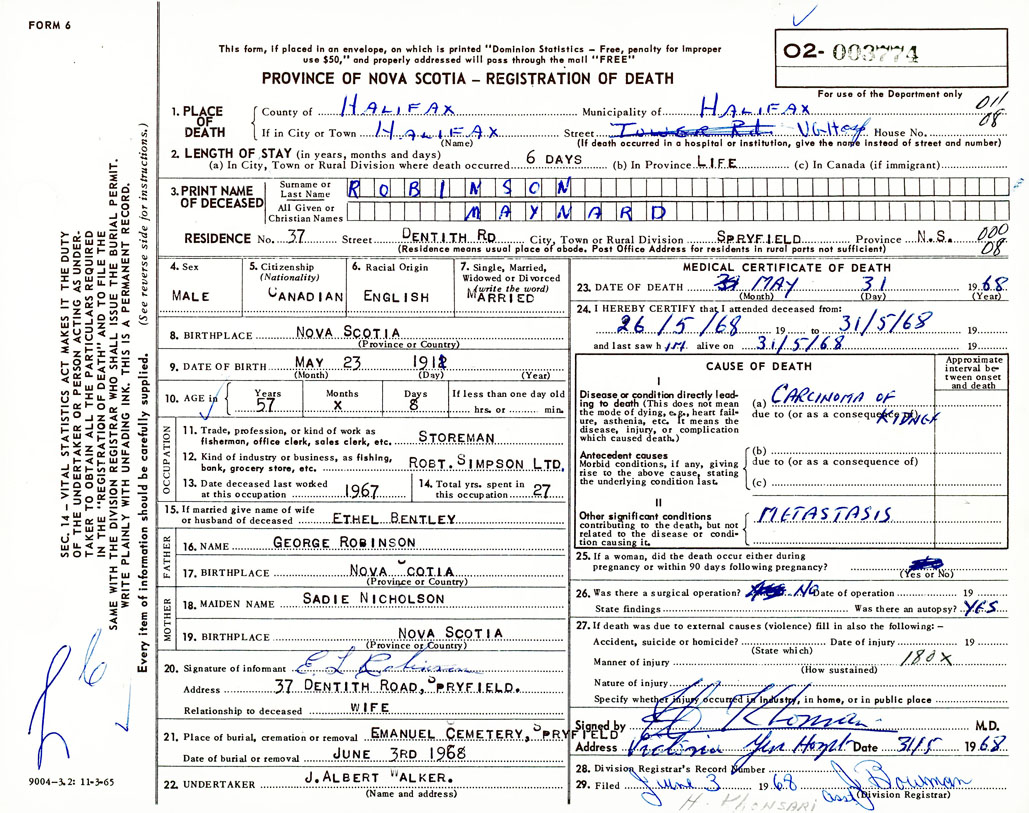 FORM 6
This form, if placed in an envelope, on which is printed "Dominion Statistics – Free, penalty for improper
use $50," and properly addressed will pass through the mail "FREE"
O2- 003774
PROVINCE OF NOVA SCOTIA – REGISTRATION OF DEATH
For use of the Department only
011
08
1. PLACE OF DEATH County of HALIFAX Municipality of HALIFAX
If in City or Town HALIFAX Street Tower Rd. VG Hosp House No.
(Name) (If death occurred in a hospital or institution, give the name instead of street and number)
2. LENGTH OF STAY (in years, months and days)
(a) In City, Town or Rural Division where death occurred 6 DAYS (b) In Province LIFE (c) In Canada (if immigrant)
3. PRINT NAME OF DECEASED
Surname or Last Name ROBINSON
All Given or Christian Names MAYNARD
RESIDENCE No. 37 Street DENTITH RD City, Town or Rural Division SPRYFIELD Province N.S. 000
08
(Residence means usual place of abode. Post Office Address for residents in rural parts not sufficient)
4. Sex
MALE
5. Citizenship
(Nationality)
CANADIAN
6. Racial Origin
ENGLISH
7. Single, Married,
Widowed or Divorced
(write the word)
MARRIED
8. BIRTHPLACE NOVA SCOTIA
(Province or Country)
9. DATE OF BIRTH MAY 23 1911
(Month) (Day) (Year)
10. AGE in Years Months Days If less than one day old
57 X 8 hrs. or min.
OCCUPATION
11. Trade, profession, or kind of work as
fisherman, office clerk, sales clerk, etc. STOREMAN
12. Kind of industry or business, as fishing,
bank, grocery store, etc. ROBT. SIMPSON LTD.
13. Date deceased last worked
at this occupation 1967
14. Total yrs. spent in
this occupation 27
15. If married give name of wife
or husband of deceased ETHEL BENTLEY
FATHER
16. NAME GEORGE ROBINSON
17. BIRTHPLACE NOVA SCOTIA
(Province or Country)
MOTHER
18. MAIDEN NAME SADIE NICHOLSON
19. BIRTHPLACE NOVA SCOTIA
(Province or Country)
20. Signature of informant E L Robinson
Address 37 DENTITH ROAD, SPRYFIELD.
Relationship to deceased WIFE
21. Place of burial, cremation or removal EMANUEL CEMETERY, SPRYFIELD
Date of burial or removal JUNE 3RD 1968
22. UNDERTAKER J. ALBERT WALKER.
(Name and address)
MEDICAL CERTIFICATE OF DEATH
23. DATE OF DEATH MAY 31 1968
(Month) (Day) (Year)
24. I HEREBY CERTIFY that I attended deceased from:
26/5/68 19 to 31/5/68 19
and last saw him alive on 31/5/68 19
CAUSE OF DEATH
Approximate
interval be-
tween onset
and death
I
Disease or condition directly lead-
ing to death (This does not mean
the mode of dying, e.g., heart fail-
ure, asthenia, etc. It means the
disease, injury, or complication
which caused death.)
(a) CARCINOMA OF
due to (or as a consequence of)
KIDNEY
Antecedent causes
Morbid conditions, if any, giving
rise to the above cause, stating
the underlying condition last.
(b)
due to (or as a consequence of)
(c)
II
Other significant conditions
contributing to the death, but not
related to the disease or condi-
tion causing it.
METASTASIS
25. If a woman, did the death occur either during
pregnancy or within 90 days following pregnancy?
(Yes or No)
26. Was there a surgical operation? NO Date of operation 19
State findings Was there an autopsy? YES
27. If death was due to external causes (violence) fill in also the following: –
Accident, suicide or homicide? Date of injury 19
(State which)
Manner of injury 180X
(How sustained)
Nature of injury
Specify whether injury occurred in industry, in home, or in public place
Signed by M.D.
Address Victoria Gen Hospt Date 31/5 1968
28. Division Registrar's Record Number
29. Filed June 3 1968 asst J Bowman
(Division Registrar)
H. KHONSARI
SEC. 14 – VITAL STATISTICS ACT MAKES IT THE DUTY
OF THE UNDERTAKER OR PERSON ACTING AS UNDER-
TAKER TO OBTAIN ALL THE PARTICULARS REQUIRED
IN THE "REGISTRATION OF DEATH" AND TO FILE THE
SAME WITH THE DIVISION REGISTRAR WHO SHALL ISSUE THE BURIAL PERMIT.
WRITE PLAINLY WITH UNFADING INK. THIS IS A PERMANENT RECORD.
Every item of information should be carefully supplied. (See reverse side for instructions.)
9004-3.2: 11-3-65